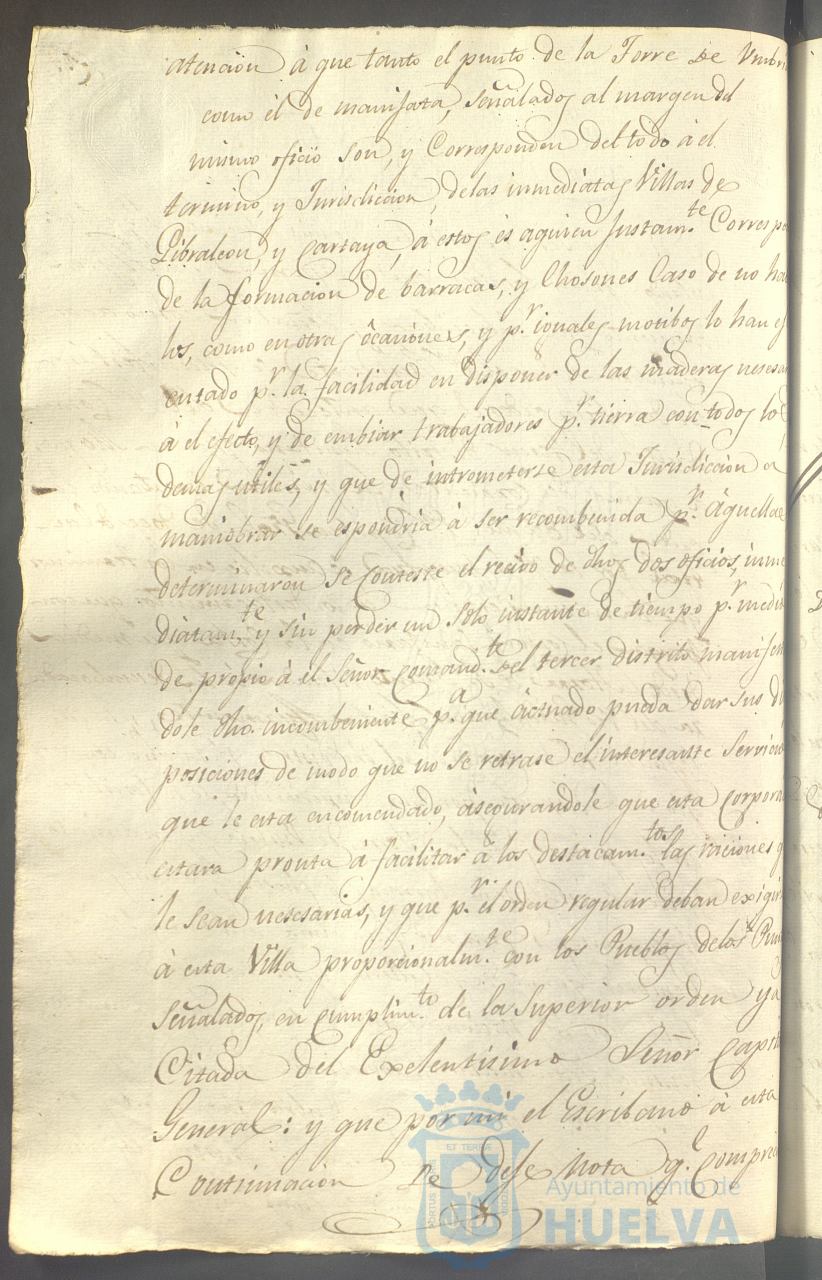 atencion à que tanto el punto de la Torre de Umbri
como él de manijata, señalados al margen del
mismo oficio son, y Corresponden del todo a el
termino, y Jurisdiccion, delas inmediatas Villas de
Gibraleon, y Cartaya, à estos és aquien Justam.te Correspo
de la formacion de barracas, y Chosones Caso de no ha
los, como en otras ôcaciones, y p.r iguales motibos lo han ej
cutado p.r la facilidad en disponer de las maderas nesesar
á el efecto, y de embiar trabajadores p.r tierra con todos lo
demas utiles, y que de intrometerse esta Jurisdiccion a
maniobrar se espondria à ser recombenida p.r áquellas
determinaron se conteste el recivo de dhos dos oficios, inme
diatam.te y sin perder un solo instante de tiempo p.r medio
de propio à el Señor Comand.te del tercer distrito manifes
dole dho. incombeniente p.a que áctuado pueda dar sus di
posiciones de modo que no se retrase el interesante Servicio
que le esta encomendado, ásegurandole que esta Corpora
estara pronta à facilitar à los destacam.tos las raciones q
le sean nesesarias, y que p.r el orden regular deban exigir
à esta Villa proporcionalm.te con los Pueblos de los Pun
señalados, en cumplim.to de la Superior orden ya
Citada del Exelentisimo Señor Capit
General: y que por mi el Escribano à esta
Continuacion se dese Nota q.e Compre
ET TERRAE
PORTUS
Ayuntamiento de
HUELVA